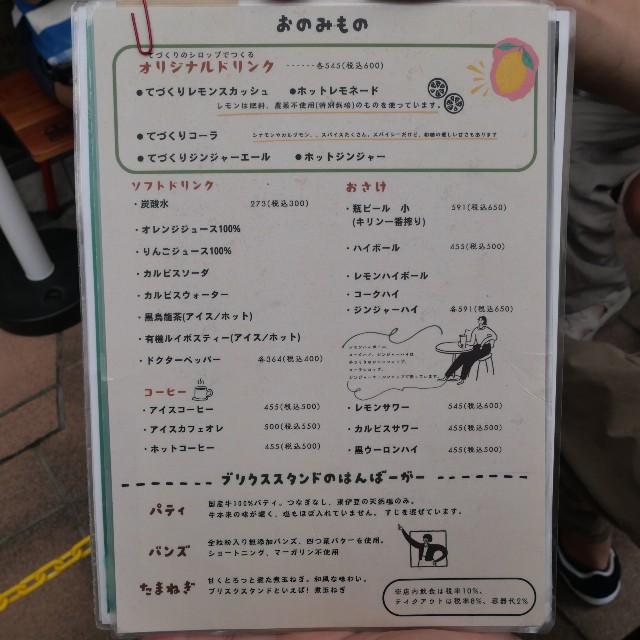 おのみもの
てづくりのシロップでつくる
オリジナルドリンク ------各545(税込600)
●てづくりレモンスカッシュ ●ホットレモネード
レモンは肥料、農薬不使用(特別栽培)のものを使っています。
●てづくりコーラ シナモンやカルダモン、、スパイスたくさん。スパイシーだけど、和糖の優しい甘さもあります
●てづくりジンジャーエール ●ホットジンジャー
ソフトドリンク
・炭酸水 273(税込300)
・オレンジジュース100%
・りんごジュース100%
・カルピスソーダ
・カルピスウォーター
・黒烏龍茶(アイス/ホット)
・有機ルイボスティー(アイス/ホット)
・ドクターペッパー 各364(税込400)
コーヒー
・アイスコーヒー 455(税込500)
・アイスカフェオレ 500(税込550)
・ホットコーヒー 455(税込500)
おさけ
・瓶ビール 小 591(税込650)
(キリン一番搾り)
・ハイボール 455(税込500)
・レモンハイボール
・コークハイ
・ジンジャーハイ 各591(税込650)
レモンハイボール、
コークハイ、ジンジャーハイは
・レモンサワー 545(税込600)
・カルピスサワー 455(税込500)
・黒ウーロンハイ 455(税込500)
ブリクススタンドのはんばーがー
パティ 国産牛100%パティ。つなぎなし、東伊豆の天然塩のみ。
牛本来の味が濃く、塩もほぼ入れていません。すじを混ぜています。
バンズ 全粒粉入り無添加バンズ、四つ葉バターを使用。
ショートニング、マーガリン不使用
たまねぎ 甘くとろっと煮た煮玉ねぎ。和風な味わい。
ブリクススタンドといえば!煮玉ねぎ
※店内飲食は税率10%、
テイクアウトは税率8%、容器代2%